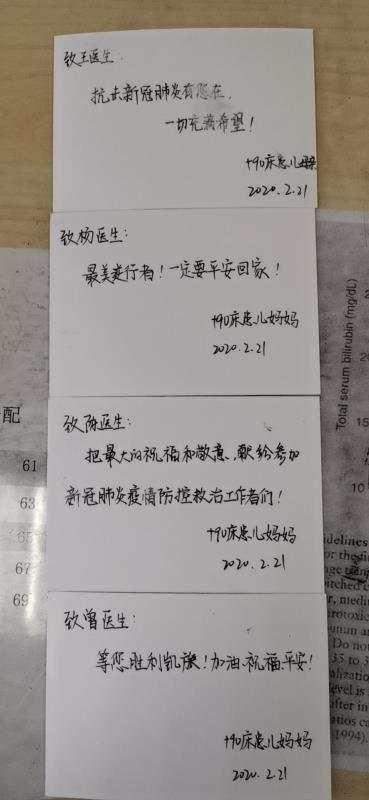 致王医生：
抗击新冠肺炎有您在，
一切充满希望！
+90床患儿妈妈
2020.2.21
致杨医生：
最美逆行者！一定要平安回家！
+90床患儿妈妈
2020.2.21
致陈医生：
把最大的祝福和敬意，献给参加
新冠肺炎疫情防控救治工作者们！
+90床患儿妈妈
2020.2.21
致曾医生：
等您胜利凯旋！加油.祝福.平安！
+90床患儿妈妈
2020.2.21
配
61
63
65
67
69
Total serum bilirubin (mg/dL)
15
10
1994).